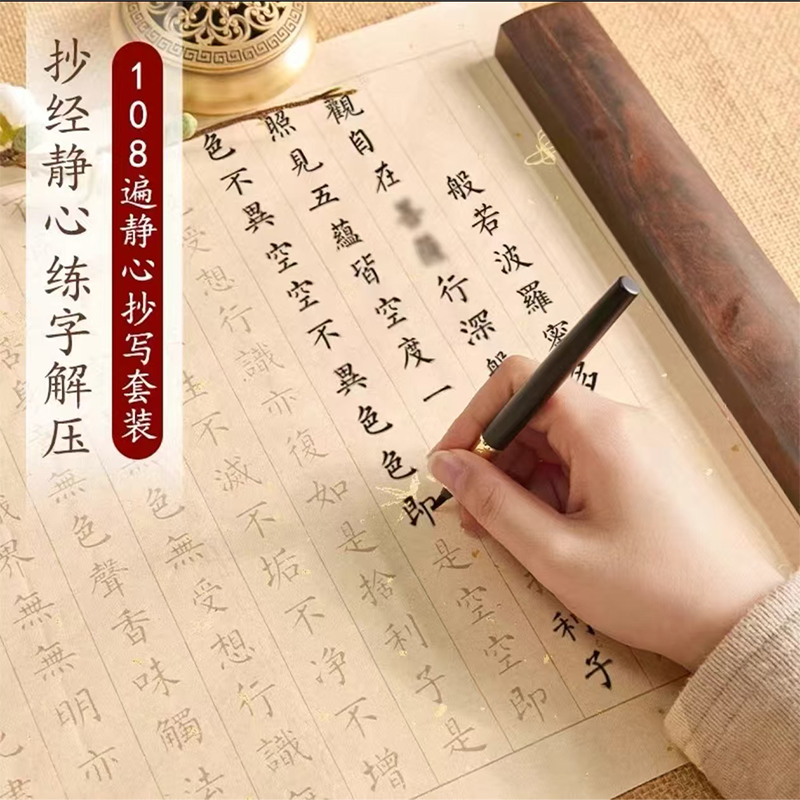 抄经静心 练字解压
108遍静心抄写套装
般若波羅密多
觀自在行深般
照見五蘊皆空度一利子
色不異空空不異色色即是空空即
受想行識亦復如是捨利子是
生不滅不垢不净不增
色無受想行識
無色聲香味觸法
界無無明亦